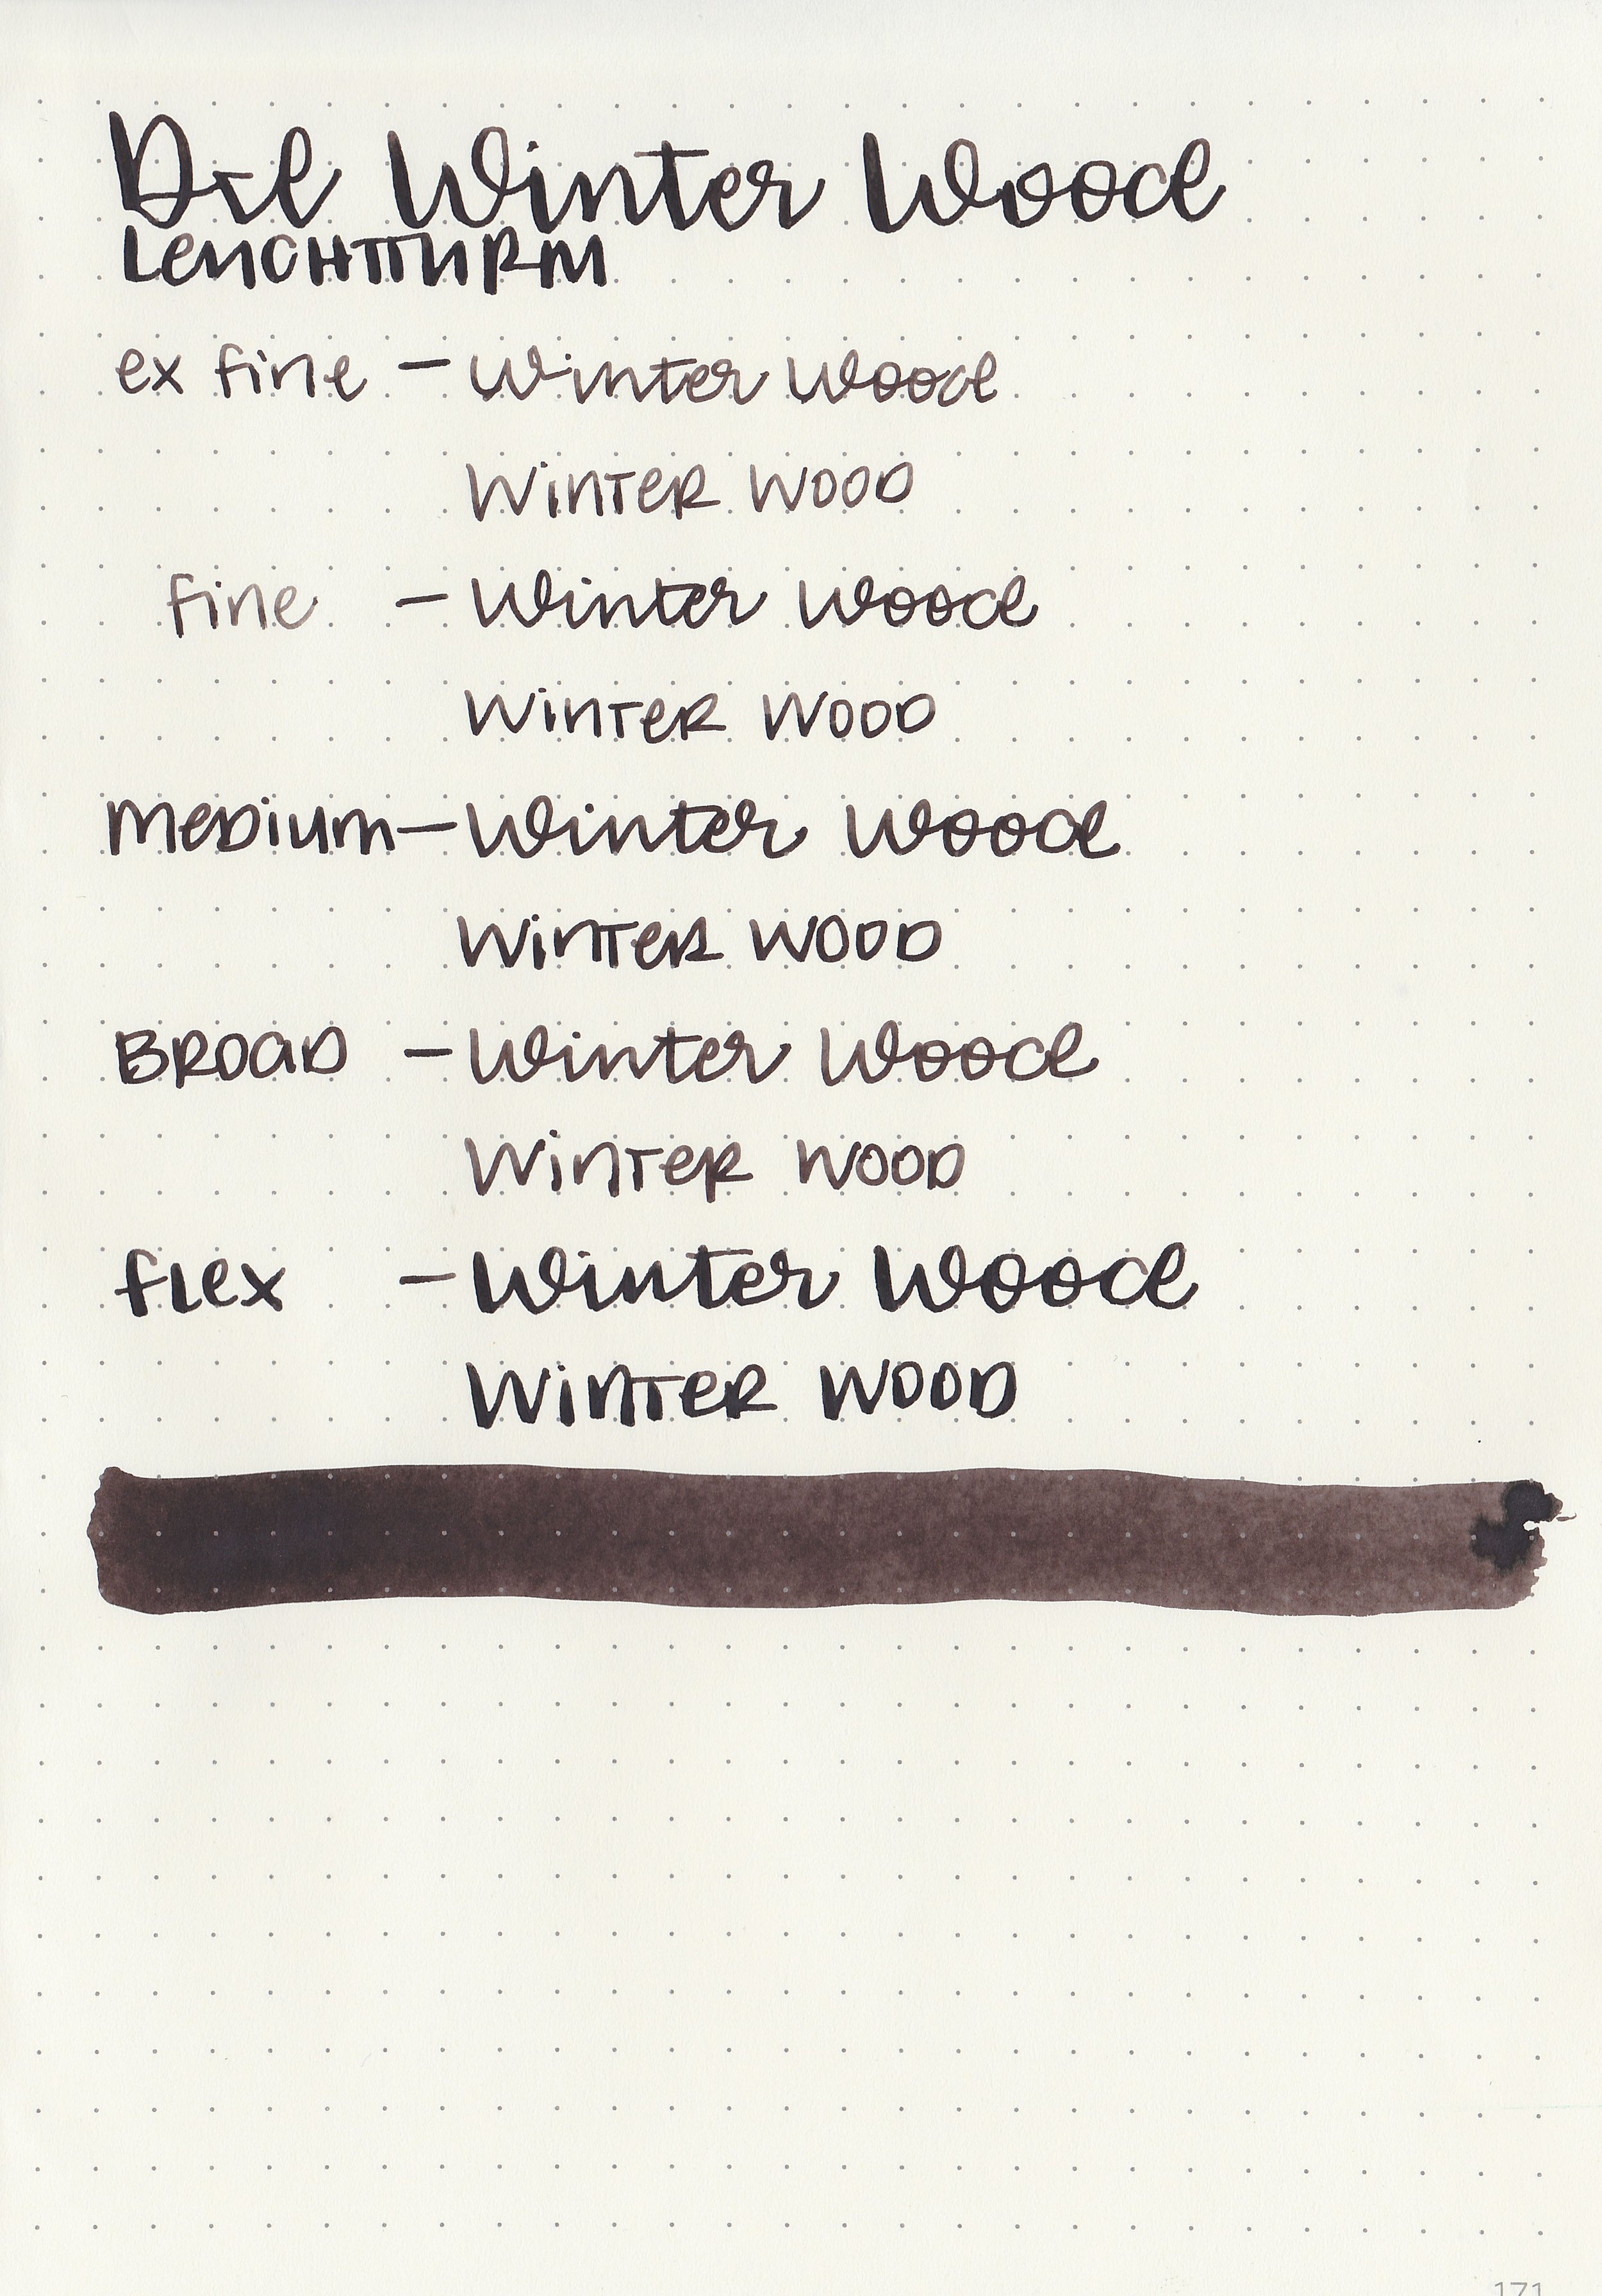 Dre Winter Wood
LeUCHTTURM
ex fine — Winter Wood
WinTeR WOOD
fine — Winter Wood
WinTeR WOOD
MeDium — Winter Wood
WinTeR WOOD
BROaD — Winter Wood
WinTeR WOOD
flex — Winter Wood
WinTeR WOOD
171